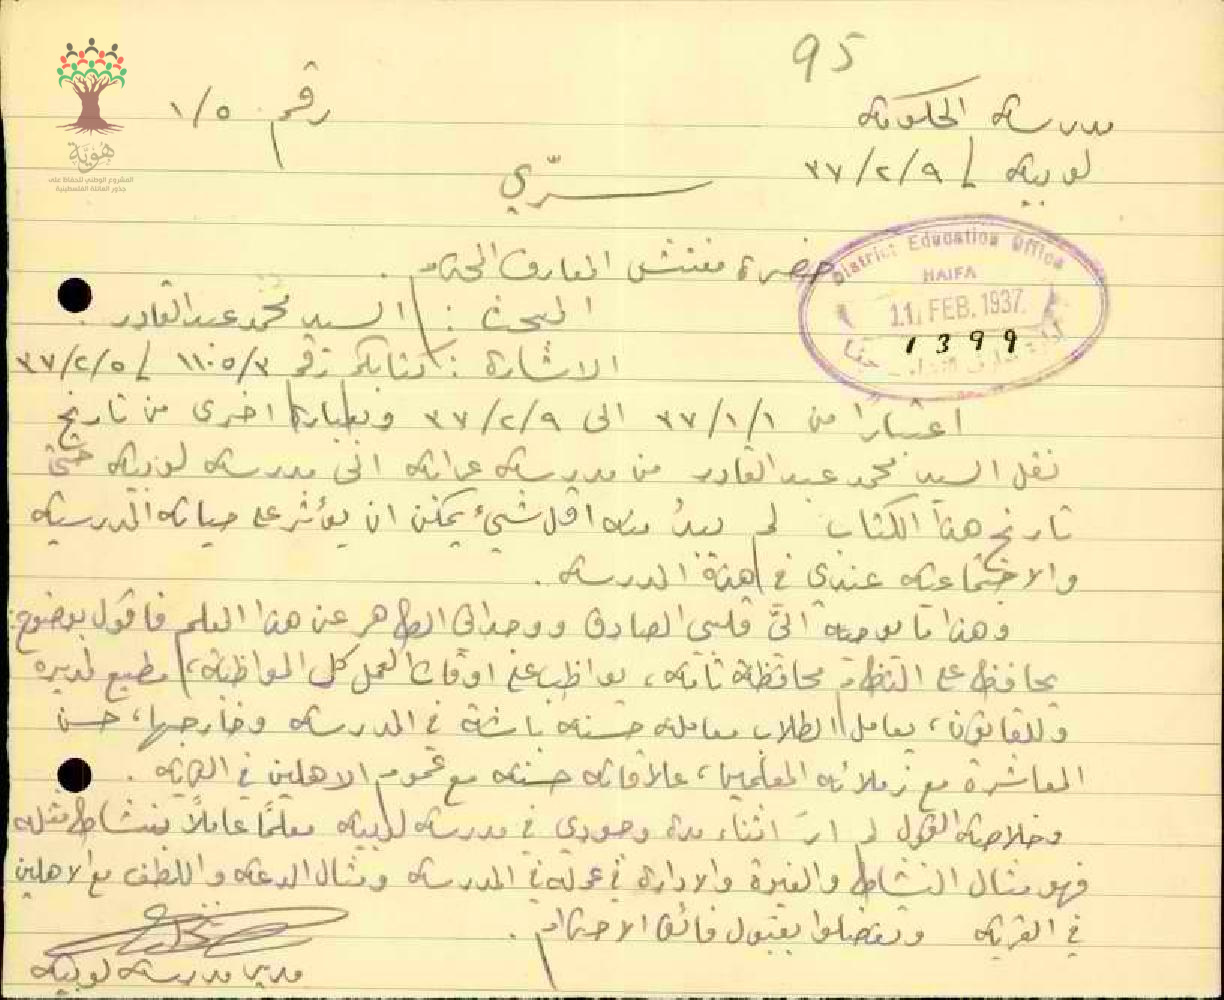 95
مدرسة الحكومة
رقم ١/٥
لوبيه / ٣٧/٢/٩
سرّي
هُوِيَّة
المشروع الوطني للحفاظ على
جذور العائلة الفلسطينية
حضرة مفتش المعارف المحترم .
District Education Office
HAIFA
11 FEB. 1937.
1399
المبحث : السيد محمد عبد القادر .
الاشارة : كتابكم رقم ٣/١١٠٥ / ٣٧/٢/٥
اعتبارًا من ٣٧/١/١ الى ٣٧/٢/٩ وبعبارة اخرى من تاريخ
نقل السيد محمد عبد القادر من مدرسة عرابه الى مدرسة لوبيه حتى
تاريخ هذا الكتاب لم يبدُ منه اقل شيء يمكن ان يؤثر على حياته المدرسية
والاجتماعية عندي في هذه المدرسة .
وهذا ما يوحيه اليّ قلبي الصادق ووجداني الطاهر عن هذا المعلم فاقول بوضوح:
يحافظ على النظام محافظة تامة، يواظب على اوقات العمل كل المواظبة، مطيع لمديره
وللقانون، يعامل الطلاب معاملة حسنة في المدرسة وخارجها، حسن
المعاشرة مع زملائه المعلمين، علاقاته حسنة مع عموم الاهلين في القرية .
وخلاصة القول لم ارَ اثناء مدة وجودي في مدرسة لوبيه معلمًا عاملاً بنشاط مثله
فهو مثال النشاط والغيرة والادارة في عمله في المدرسة ومثال الدعة واللطف مع الاهلين
في القرية وتفضلوا بقبول فائق الاحترام .
مدير مدرسة لوبيه